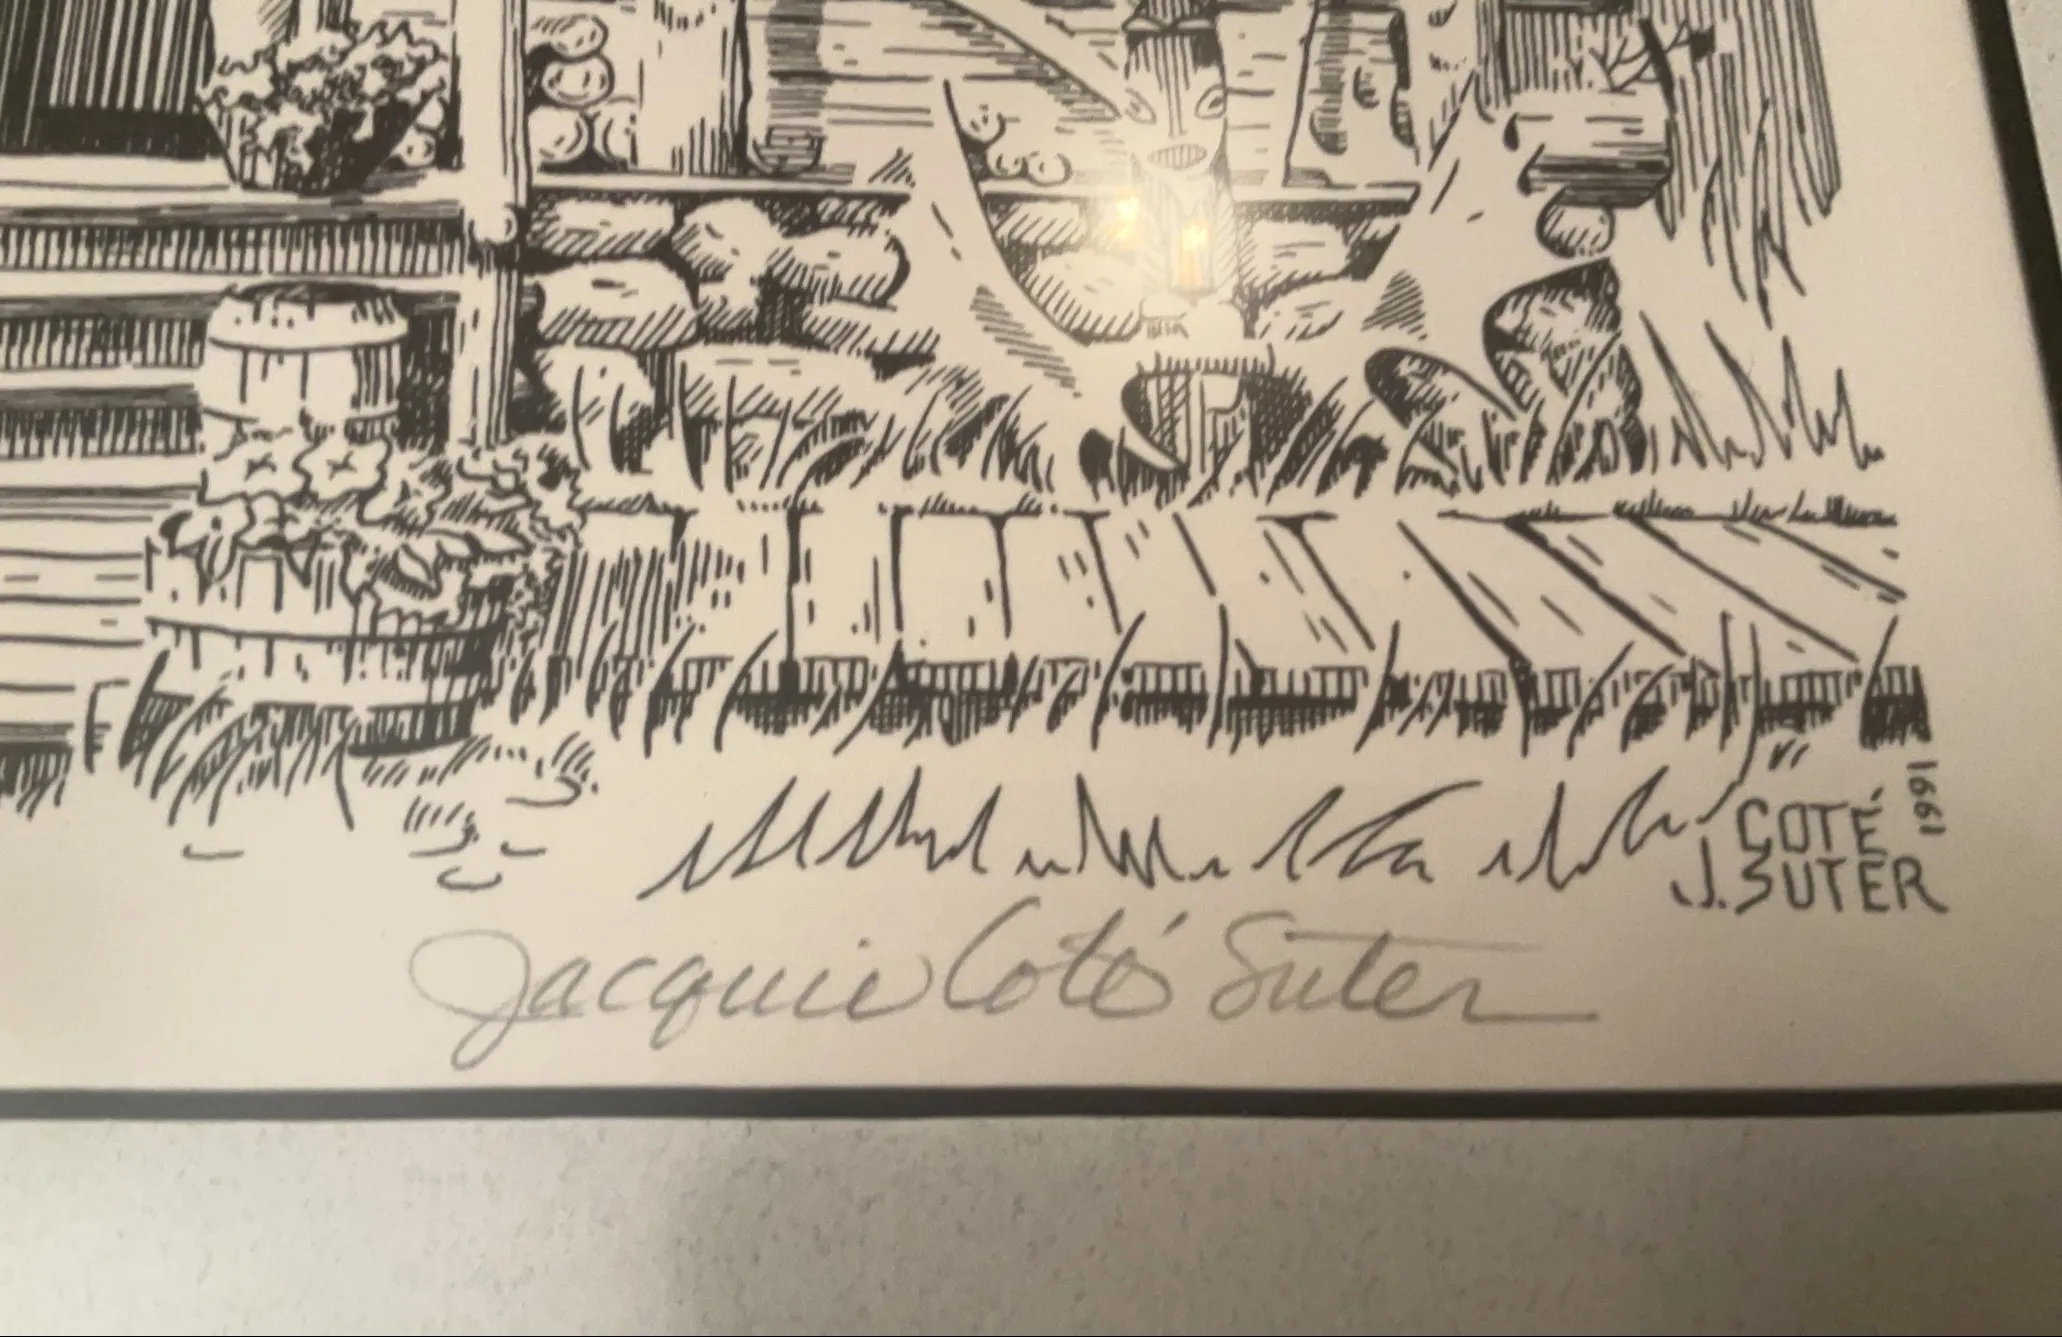 1991
COTÉ
J. SUTER
Jacquie Coté Suter